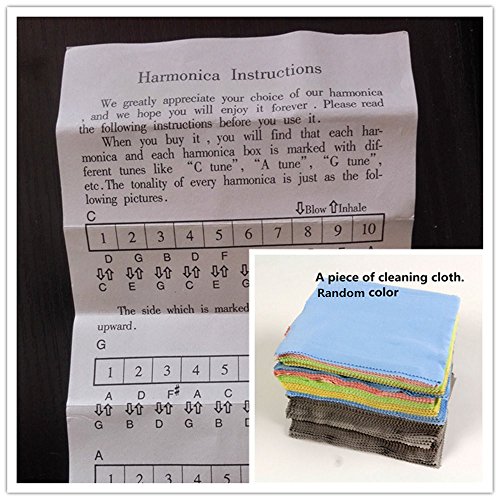 Harmonica Instructions
We greatly appreciate your choice of our harmonica
, and we hope you will enjoy it forever . Please read
the following instructions before you use it.
When you buy it , you will find that each har-
monica and each harmonica box is marked with dif-
ferent tunes like "C tune", "A tune", "G tune",
etc. The tonality of every harmonica is just as the fol-
lowing pictures.
C ⇩Blow ⇧Inhale
1 2 3 4 5 6 7 8 9 10
D G B D F
⇩⇧ ⇩⇧ ⇩⇧ ⇩⇧ ⇩⇧
C E G C E G
The side which is marked
upward.
G
1 2 3 4 5
A D F# A C
⇩⇧ ⇩⇧ ⇩⇧ ⇩⇧ ⇩⇧
G B D G B
A
1 2 3 4 5
A piece of cleaning cloth.
Random color